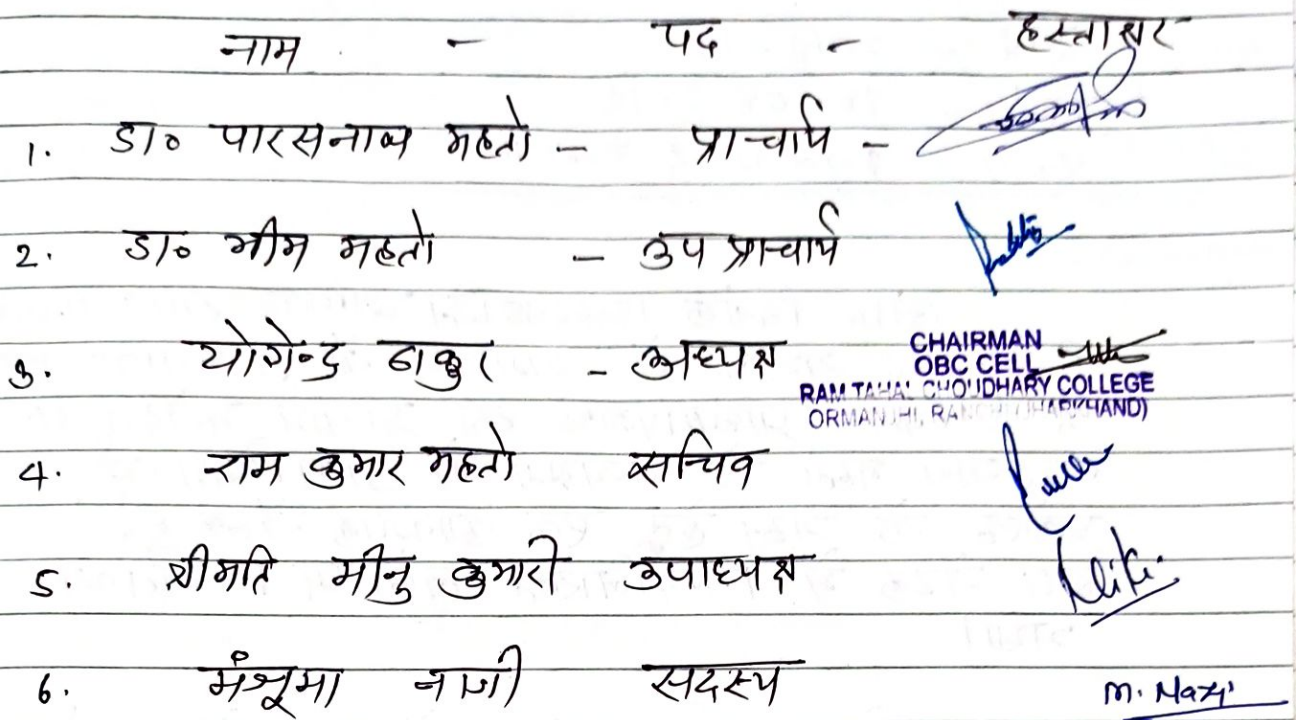 नाम - पद - हस्ताक्षर
1. डा० पारसनाथ महतो - प्राचार्य -
2. डा० भीम महतो - उप प्राचार्य
3. योगेन्द्र ठाकुर - अध्यक्ष
CHAIRMAN
OBC CELL
RAM TAHAL CHOUDHARY COLLEGE
ORMANJHI, RANCHI (JHARKHAND)
4. राम कुमार महतो सचिव
5. श्रीमति मीनु कुमारी उपाध्यक्ष
6. सदस्य M. Nazi